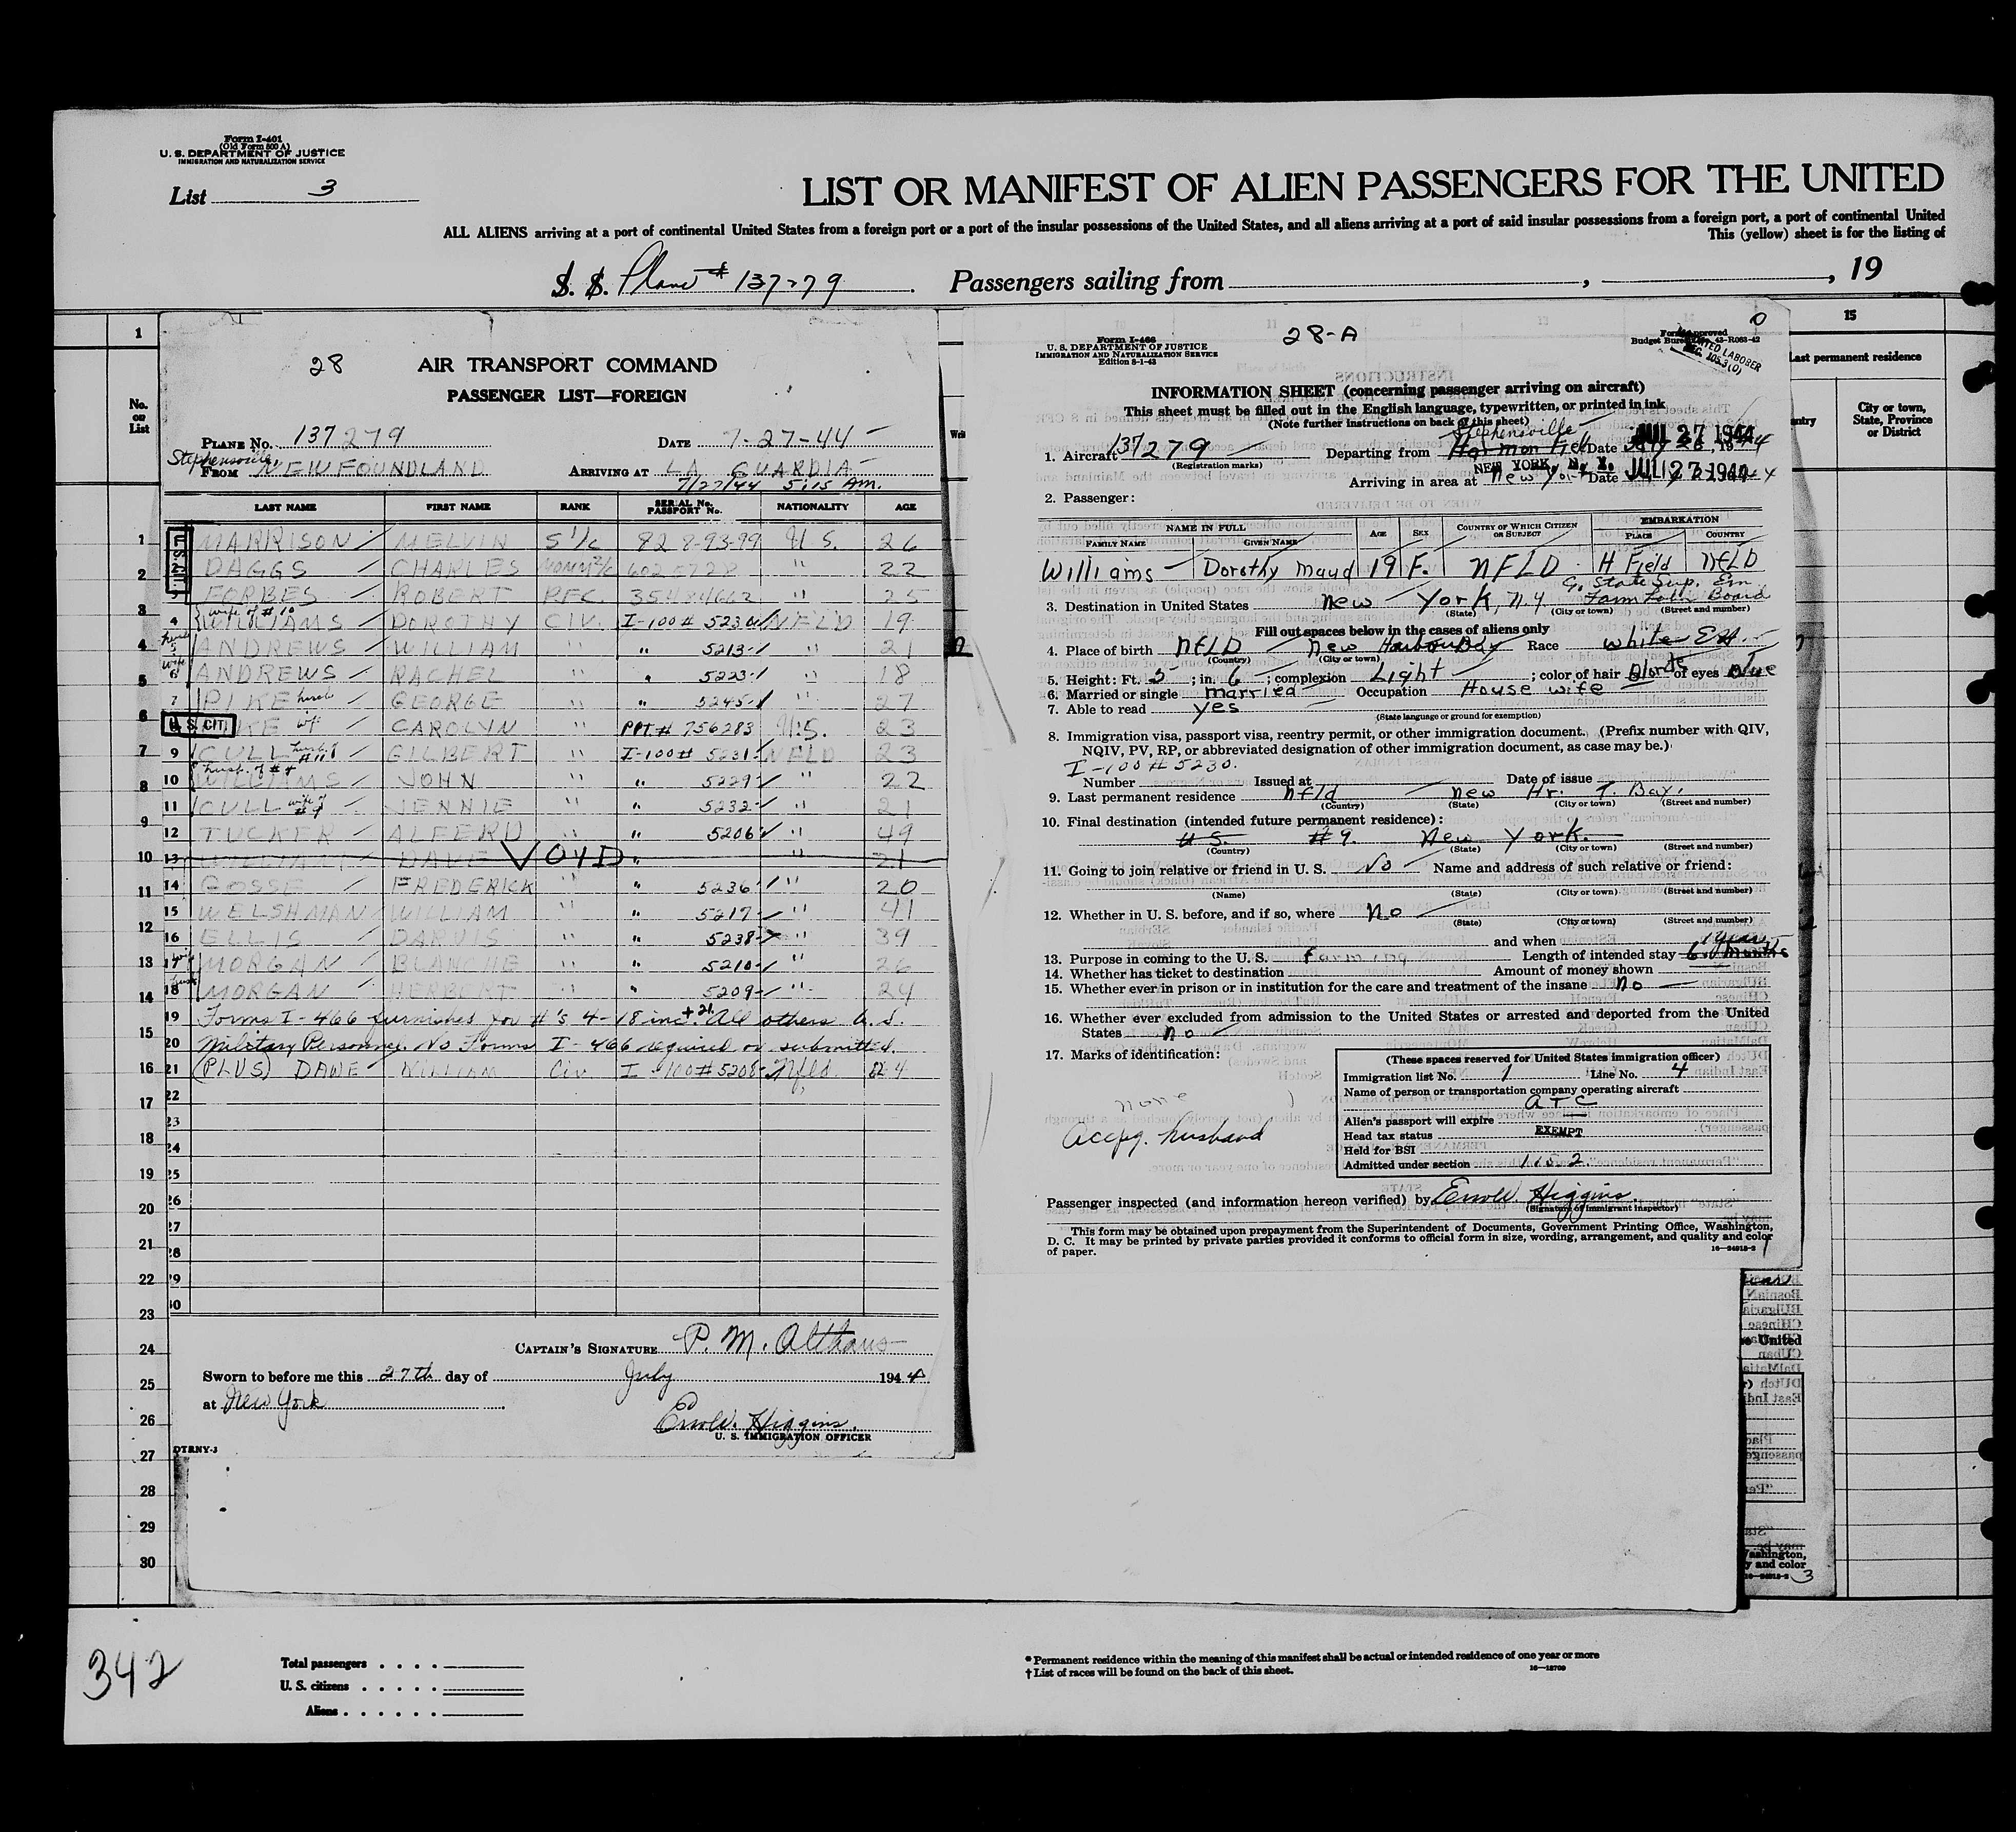 Form I-401
(Old Form 500 A)
U. S. DEPARTMENT OF JUSTICE
IMMIGRATION AND NATURALIZATION SERVICE
List 3
LIST OR MANIFEST OF ALIEN PASSENGERS FOR THE UNITED
ALL ALIENS arriving at a port of continental United States from a foreign port or a port of the insular possessions of the United States, and all aliens arriving at a port of said insular possessions from a foreign port, a port of continental United
This (yellow) sheet is for the listing of
S. S. Plane # 137279 . Passengers sailing from , , 19
1
No. on List
28
AIR TRANSPORT COMMAND
PASSENGER LIST—FOREIGN
PLANE NO. 137279 DATE 7-27-44
Stephensville
FROM NEWFOUNDLAND ARRIVING AT LA GUARDIA
7/27/44 5:15 Am.
LAST NAME FIRST NAME RANK SERIAL NO. PASSPORT NO. NATIONALITY AGE
U.S. CIT.
1 MARRISON MELVIN S 1/c 828-93-99 U.S. 26
2 DAGGS CHARLES MOMM 2/c 602 5728 " 22
3 FORBES ROBERT PFC. 35484662 " 25
wife of # 10
4 WILLIAMS DOROTHY CIV. I-100 # 5230 NFLD 19
husb
5 ANDREWS WILLIAM " " 5213 " 21
wife
6 ANDREWS RACHEL " " 5223 " 18
7 PIKE husb GEORGE " " 5245 " 27
U. S. CIT. PIKE wf CAROLYN " PPT # 756283 U.S. 23
9 CULL husb # 11 GILBERT " I-100 # 5231 NFLD 23
husb. of # 4
10 WILLIAMS JOHN " " 5229 " 22
11 CULL wife of # 9 JENNIE " " 5232 " 21
12 TUCKER ALFERD " " 5206 " 49
13 DAVE VOID " " 21
14 GOSSE FREDERICK " " 5236 " 20
15 WELSHMAN WILLIAM " " 5217 " 41
16 ELLIS DARVIS " " 5238 " 39
wife
17 MORGAN BLANCHE " " 5210 " 26
husb
18 MORGAN HERBERT " " 5209 " 24
19 Forms I-466 furnished for #'s 4-18 inc. + 21. All others U.S.
20 Military Personnel. No Forms I-466 required or submitted.
21 (PLUS) DAWE WILLIAM Civ I-100 # 5208 Nfld. 24
22
23
24
25
26
27
28
29
30
CAPTAIN'S SIGNATURE P. M. Althaus
Sworn to before me this 27th day of July 1944
at New York
Errol D. Higgins.
U. S. IMMIGRATION OFFICER
DTRNY-J
28-A
Form I-466
U. S. DEPARTMENT OF JUSTICE
IMMIGRATION AND NATURALIZATION SERVICE
Edition 8-1-43
Form approved
Budget Bureau No. 43-R083-42
INFORMATION SHEET (concerning passenger arriving on aircraft)
This sheet must be filled out in the English language, typewritten, or printed in ink
(Note further instructions on back of this sheet)
Stephensville
1. Aircraft 137279 Departing from Harmon Field Date JUL 27 1944
(Registration marks)
NEW YORK, N. Y.
Arriving in area at New York Date JUL 27 1944
2. Passenger:
NAME IN FULL AGE SEX COUNTRY OF WHICH CITIZEN OR SUBJECT EMBARKATION
FAMILY NAME GIVEN NAME PLACE COUNTRY
Williams Dorothy Maud 19 F. NFLD H Field NFLD
3. Destination in United States New York, N.Y.
(State) (City or town) (Street and number)
Fill out spaces below in the cases of aliens only
4. Place of birth NFLD New Harbour Race white
(Country) (City or town)
5. Height: Ft. 5; in. 6; complexion Light; color of hair Blonde of eyes blue
6. Married or single married Occupation House wife
7. Able to read yes
(State language or ground for exemption)
8. Immigration visa, passport visa, reentry permit, or other immigration document. (Prefix number with QIV, NQIV, PV, RP, or abbreviated designation of other immigration document, as case may be.)
I-100 # 5230.
Number Issued at Date of issue
9. Last permanent residence nfld New Hr. T. Bay.
(Country) (State) (City or town) (Street and number)
10. Final destination (intended future permanent residence):
U.S. # 9. New York.
(Country) (State) (City or town) (Street and number)
11. Going to join relative or friend in U. S. No Name and address of such relative or friend:
(Name) (State) (City or town) (Street and number)
12. Whether in U. S. before, and if so, where No
(State) (City or town) (Street and number)
and when
1 year
13. Purpose in coming to the U. S. Farming Length of intended stay 6 months
14. Whether has ticket to destination Amount of money shown
15. Whether ever in prison or in institution for the care and treatment of the insane No
16. Whether ever excluded from admission to the United States or arrested and deported from the United
States No
17. Marks of identification:
none
accpg. husband
(These spaces reserved for United States immigration officer)
Immigration list No. 1 Line No. 4
Name of person or transportation company operating aircraft
ATC
Alien's passport will expire
Head tax status EXEMPT
Held for BSI
Admitted under section 115.2
Passenger inspected (and information hereon verified) by Errol D. Higgins
(Signature of immigrant inspector)
This form may be obtained upon prepayment from the Superintendent of Documents, Government Printing Office, Washington,
D. C. It may be printed by private parties provided it conforms to official form in size, wording, arrangement, and quality and color
of paper.
15
Last permanent residence
City or town, State, Province or District
342
Total passengers
U. S. citizens
Aliens
* Permanent residence within the meaning of this manifest shall be actual or intended residence of one year or more
† List of races will be found on the back of this sheet.